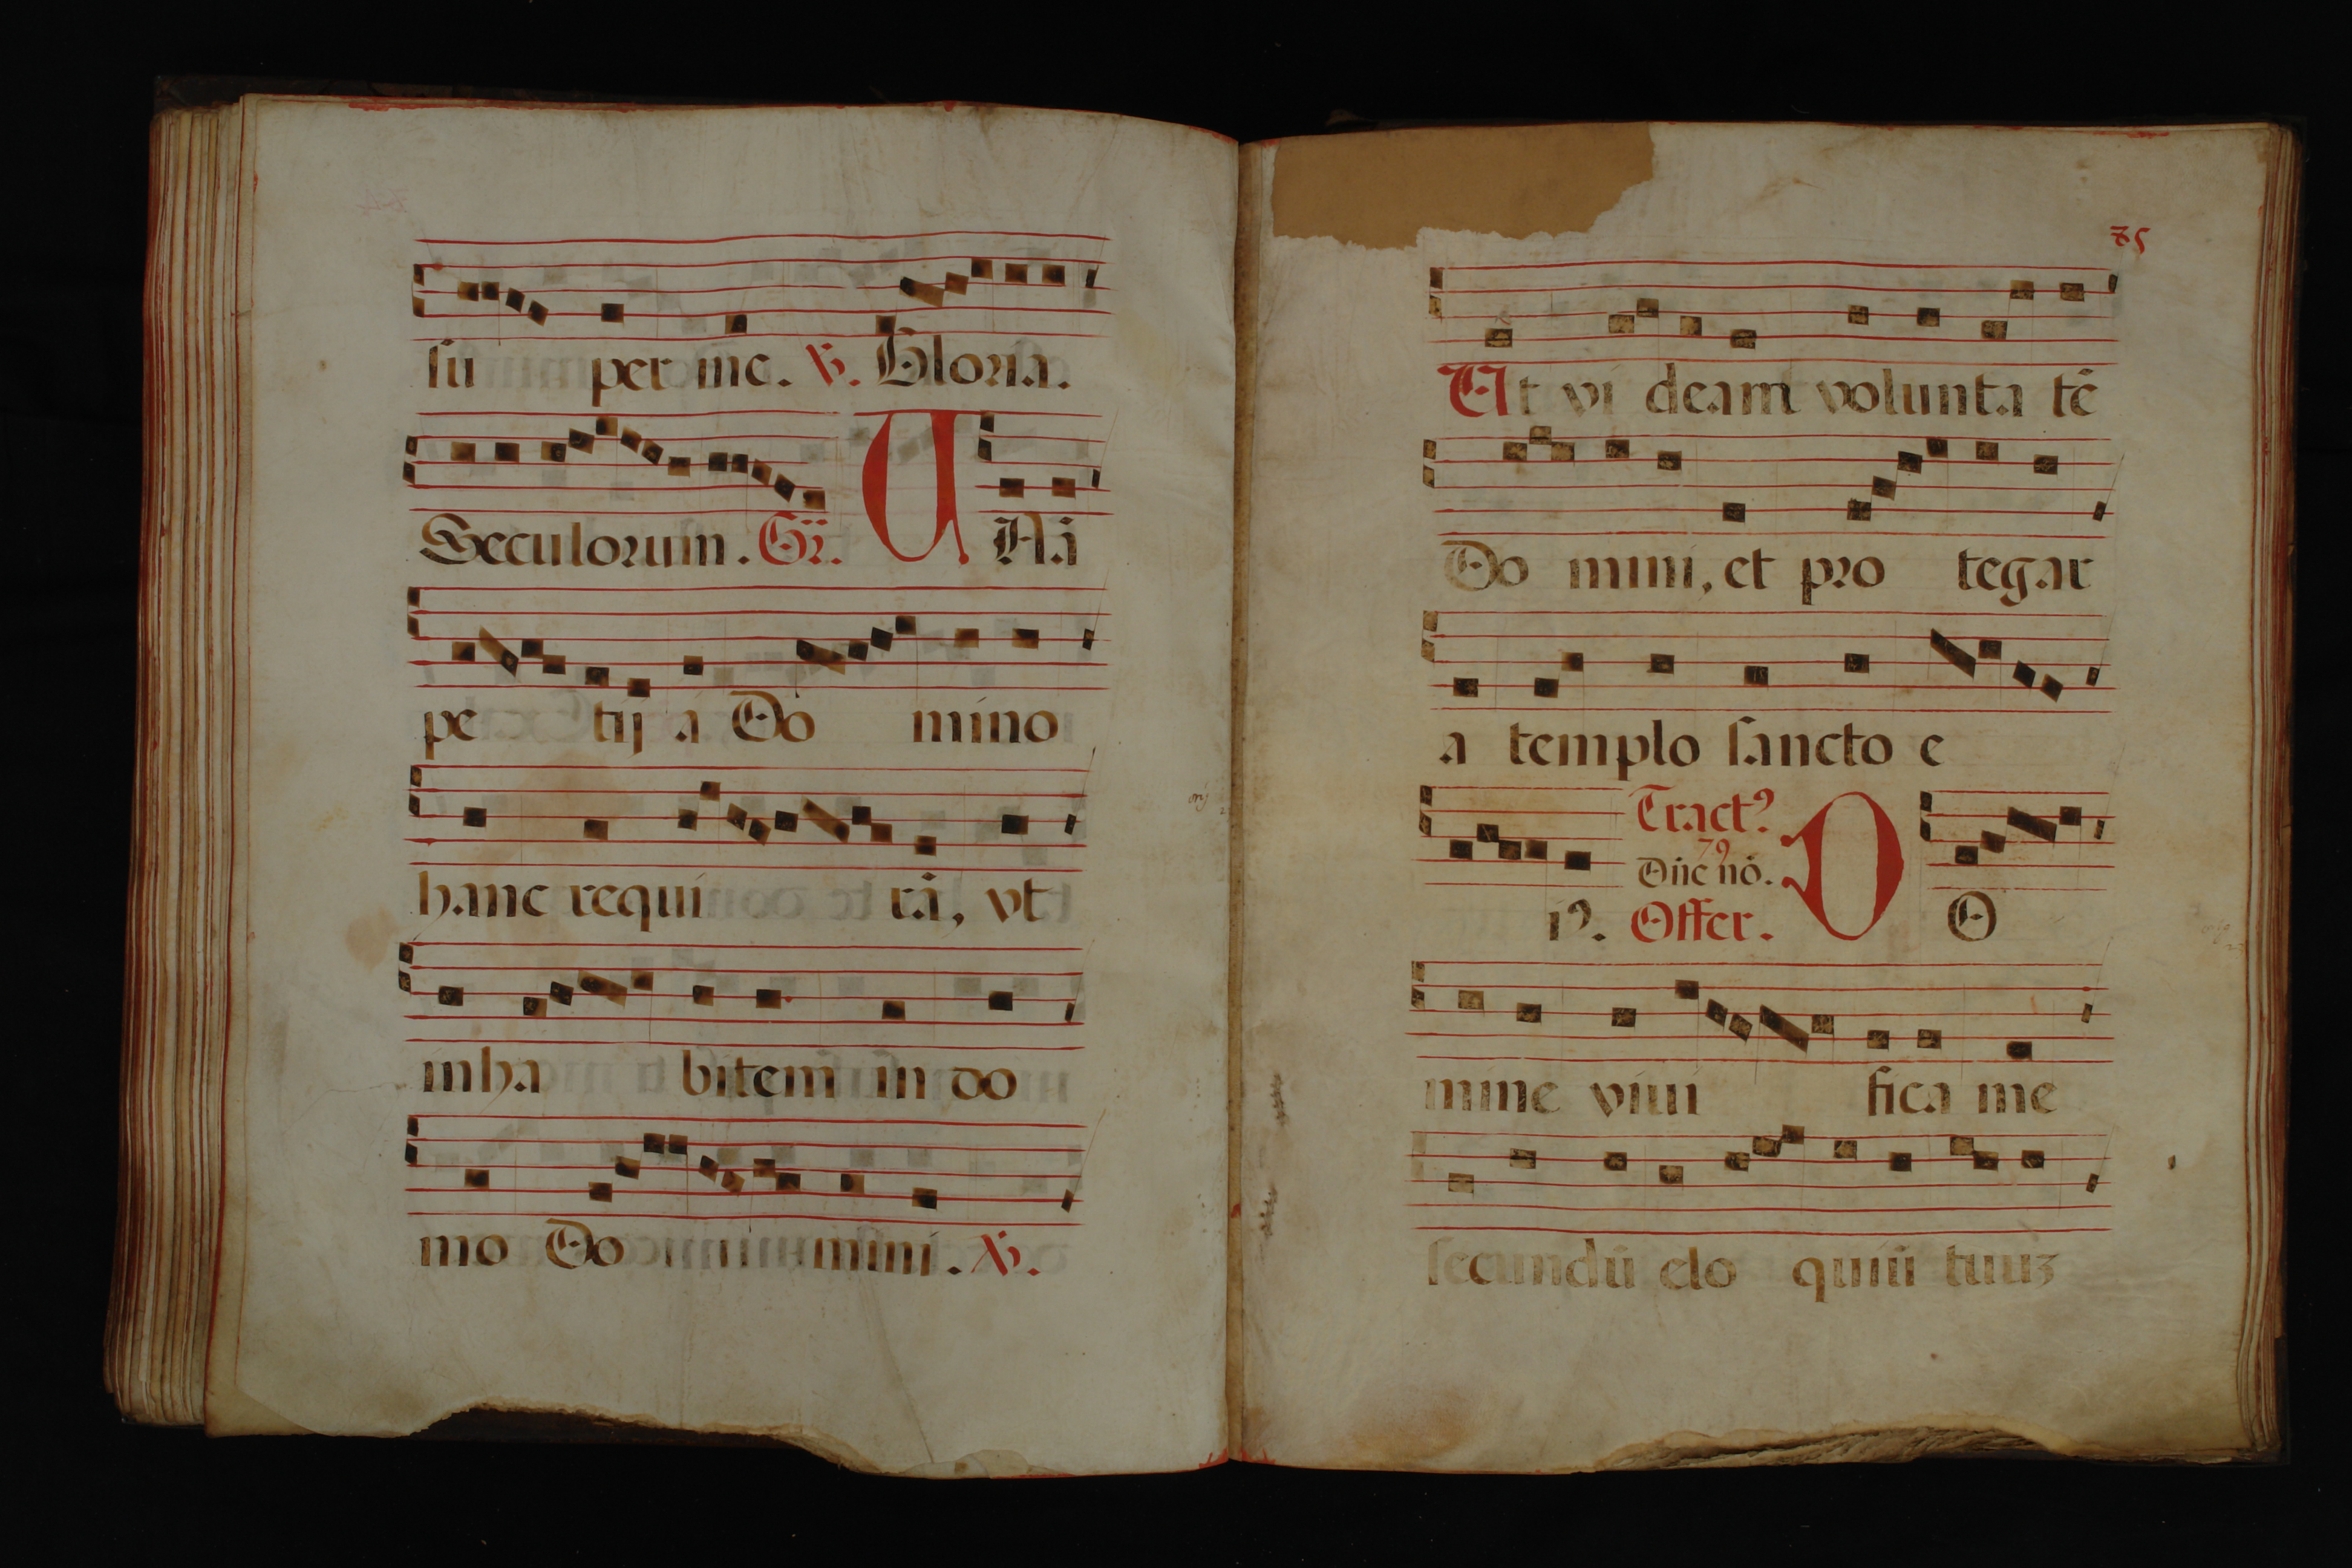 su per me. ℣. Gloria.
Seculorum. Gr. U Nā
pe tij a Do mino
hanc requi rā, vt
inha bitem in do
mo Do mini. ℣.
75
Et vi deam volunta tē
Do mini, et pro tegar
a templo sancto e
Tractꝰ
79
Dñe nō.
iꝰ. Offer. D O
mine viui fica me
secundū elo quiū tuuz